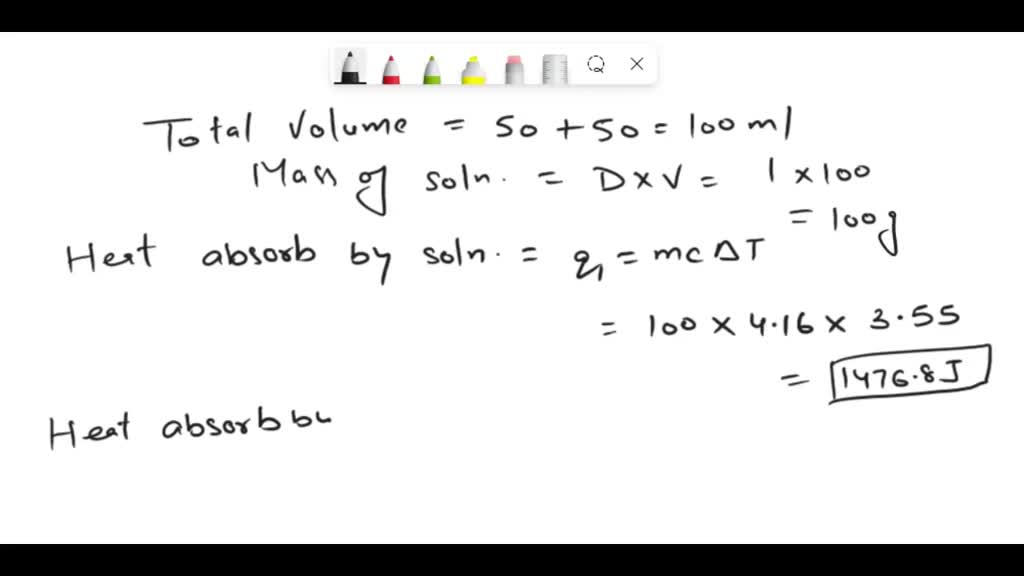 Total Volume = 50 + 50 = 100 ml
Mass of soln. = D x V = 1 x 100
= 100g
Heat absorb by soln. = q1 = mc ΔT
= 100 x 4.16 x 3.55
= 1476.8J
Heat absorb by